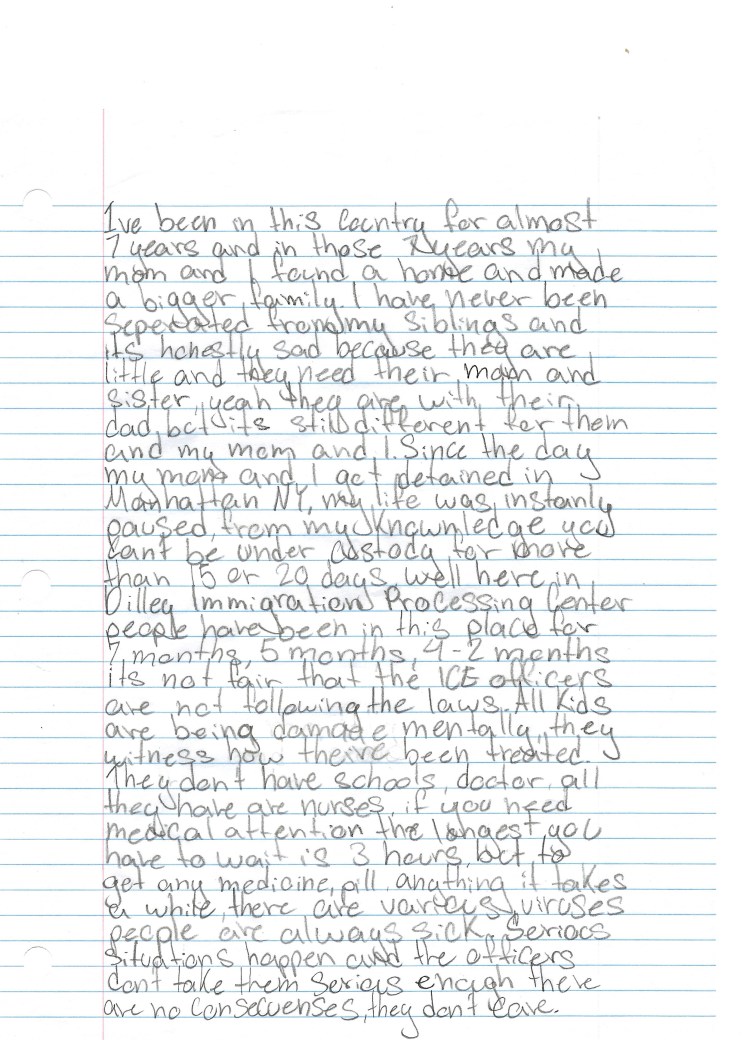 Ive been in this Country for almost
7 years and in those 7 years my
mom and I found a home and made
a bigger family. I have never been
Seperated from my siblings and
its honestly sad because they are
little and they need their mom and
sister, yeah they are with their
dad, but its still different for them
and my mom and I. Since the day
my mom and I got detained in
Manhattan NY, my life was instanly
paused, from my Knownledge you
cant be under custody for more
than 15 or 20 days, well here in
Dilley Immigration Processing Center
people have been in this place for
7 months, 5 months, 4-2 months
its not fair that the ICE officers
are not following the laws. All Kids
are being damage mentally, they
witness how theire been treated.
They don't have schools, doctor, all
they have are nurses, if you need
medical attention the longest you
have to wait is 3 hours, but to
get any medicine, pill, anything it takes
a while, there are various viruses
people are always sick. Serious
Situations happen and the officers
dont take them serius enough there
are no consecuenses, they don't care.